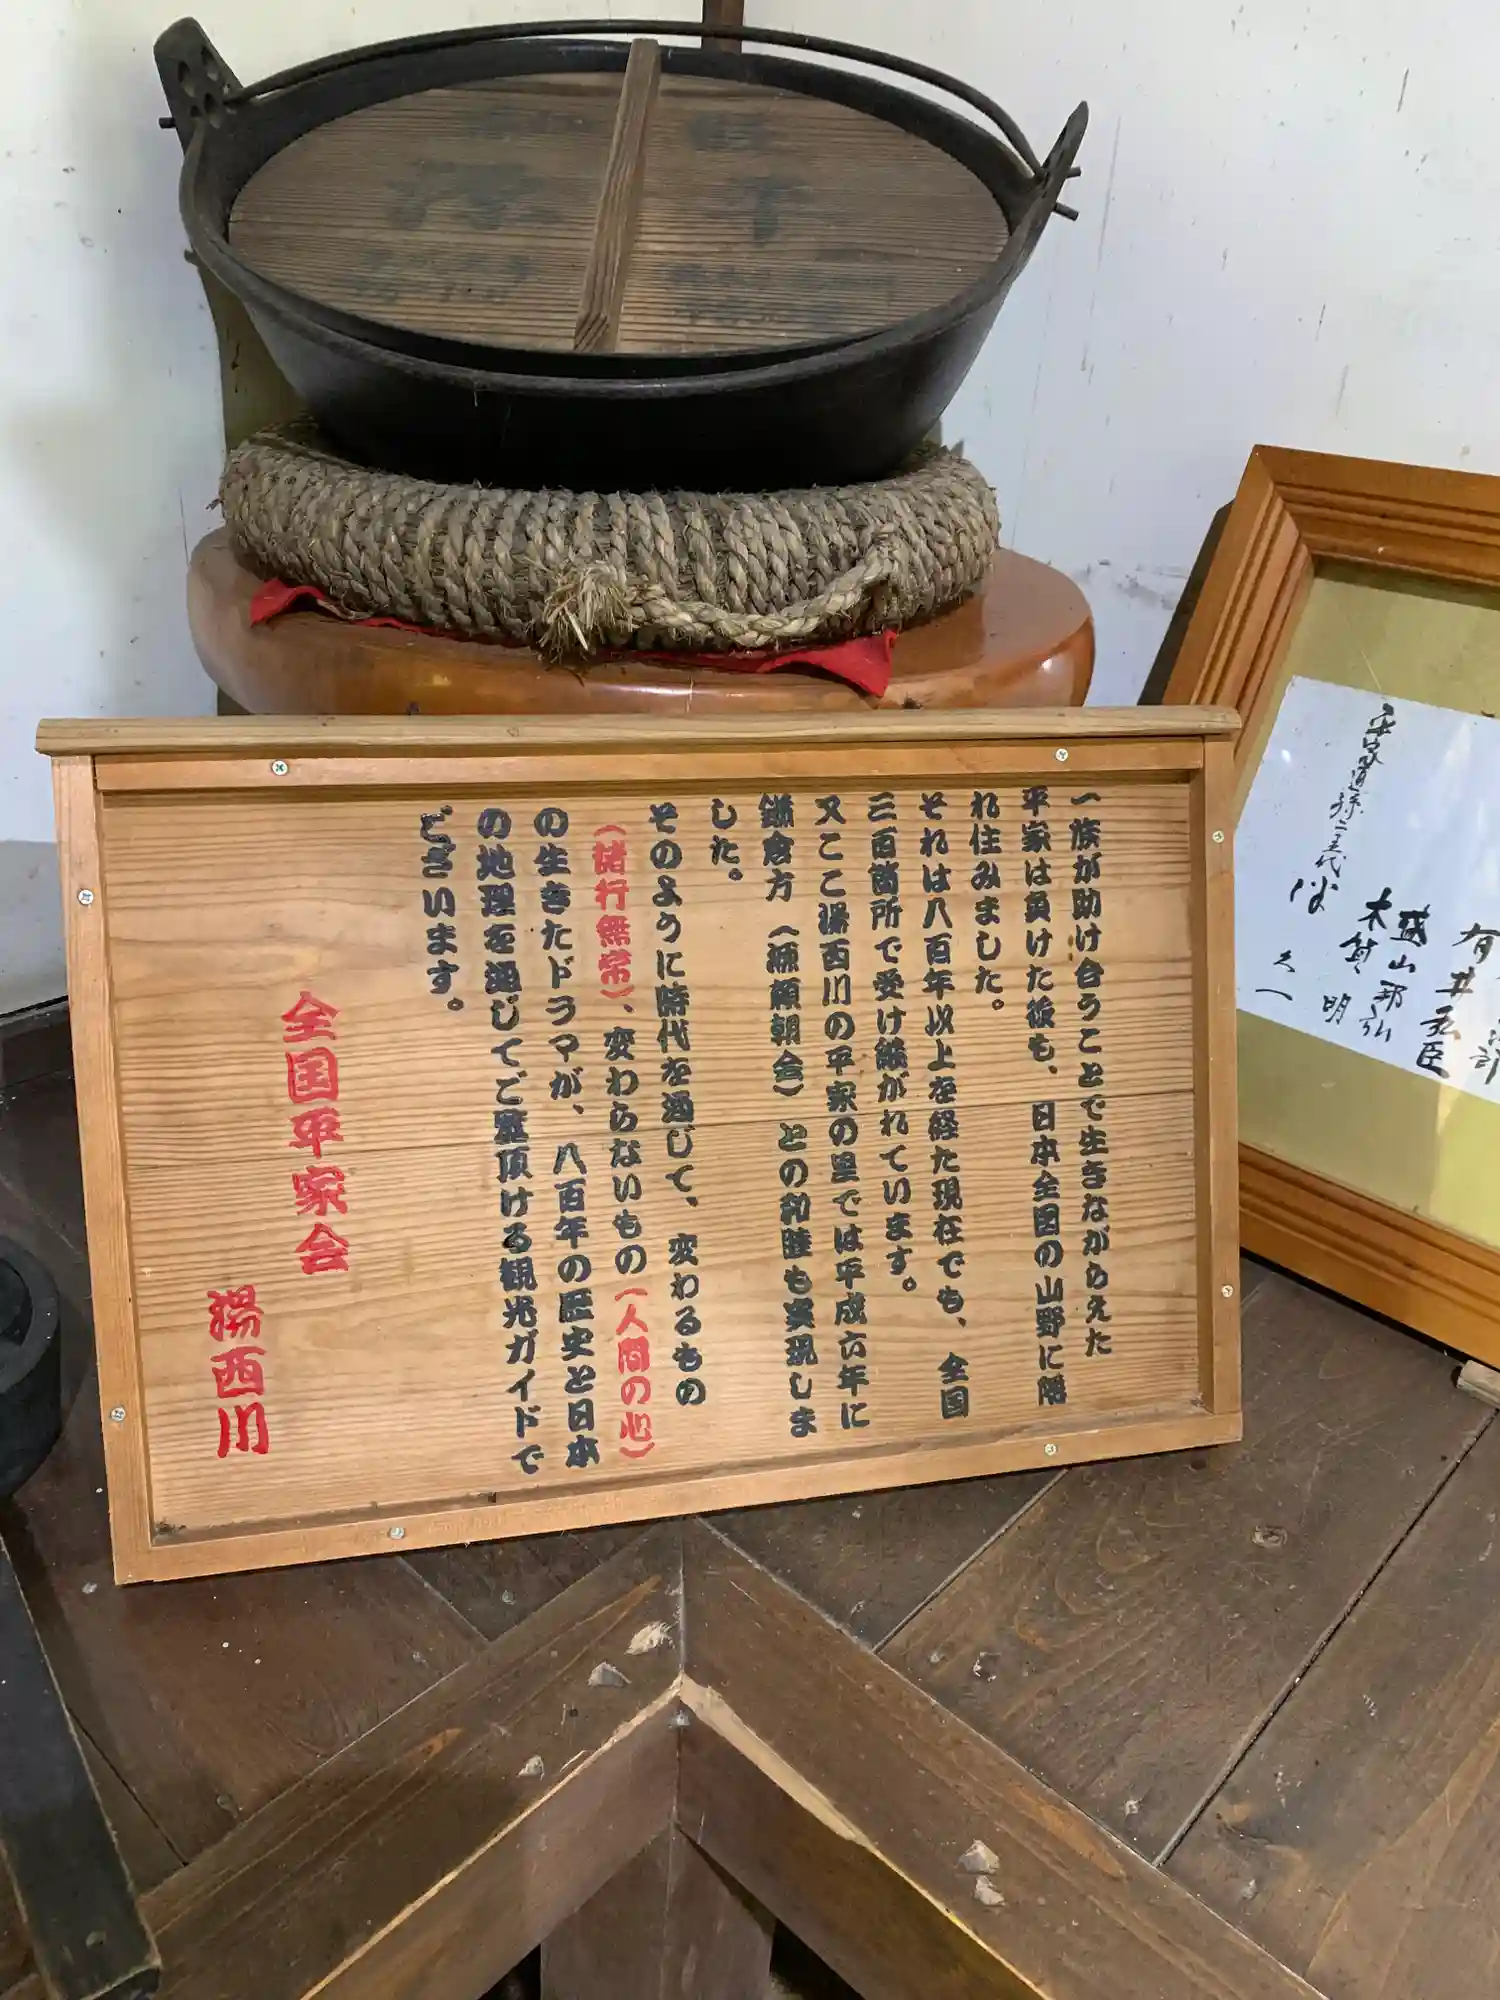 一族が助け合うことで生きながらえた
平家は負けた後も、日本全国の山野に隠
れ住みました。
それは八百年以上を経た現在でも、全国
三百箇所で受け継がれています。
又ここ湯西川の平家の里では平成六年に
鎌倉方（源頼朝会）との和睦も実現しま
した。
そのように時代を通じて、変わるもの
（諸行無常）、変わらないもの（人間の心）
の生きたドラマが、八百年の歴史と日本
の地理を通じてご覧頂ける観光ガイドで
ございます。
全国平家会
湯西川
有井弘臣
盛山邦弘
木箕 明